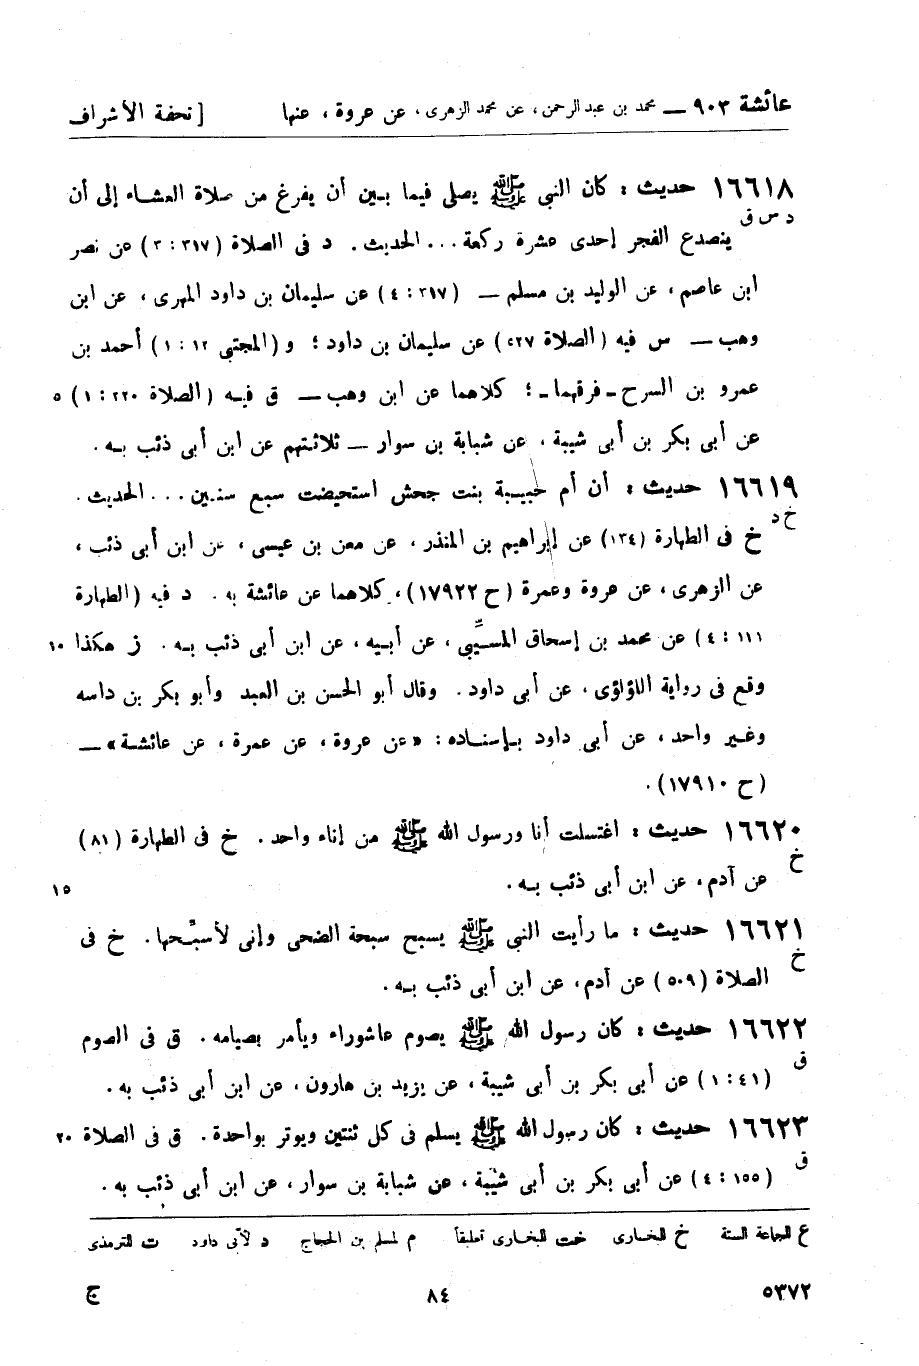 عائشة ٩٠٣ — محمد بن عبد الرحمن، عن محمد الزهرى، عن عروة، عنها [ تحفة الأشراف
١٦٦١٨ حديث : كان النبى ﷺ يصلى فيما بين أن يفرغ من صلاة العشاء إلى أن
د س ق
ينصدع الفجر إحدى عشرة ركعة ... الحديث. د فى الصلاة (٣١٧ : ٣) عن نصر
ابن عاصم، عن الوليد بن مسلم — (٣١٧ : ٤) عن سليمان بن داود المهرى، عن ابن
وهب — س فيه (الصلاة ٥٢٧) عن سليمان بن داود؛ و (المجتبى ١٢ : ١) أحمد بن
عمرو بن السرح ـ فرقهما ـ؛ كلاهما عن ابن وهب — ق فيه (الصلاة ٢٢٠ : ١) ٥
عن أبى بكر بن أبى شيبة، عن شبابة بن سوار — ثلاثتهم عن ابن أبى ذئب به.
١٦٦١٩ حديث : أن أم حبيبة بنت جحش استحيضت سبع سنين ... الحديث.
خ د
خ فى الطهارة (١٣٤) عن إبراهيم بن المنذر، عن معن بن عيسى، عن ابن أبى ذئب،
عن الزهرى، عن عروة وعمرة (ح ١٧٩٢٢)، كلاهما عن عائشة به. د فيه (الطهارة
١١١ : ٤) عن محمد بن إسحاق المسيَّبى، عن أبيه، عن ابن أبى ذئب به. ز هكذا ١٠
وقع فى رواية اللؤلؤى، عن أبى داود. وقال أبو الحسن بن العبد وأبو بكر بن داسه
وغير واحد، عن أبى داود بإسناده: «عن عروة، عن عمرة، عن عائشة» —
(ح ١٧٩١٠).
١٦٦٢٠ حديث : اغتسلت أنا ورسول الله ﷺ من إناء واحد. خ فى الطهارة (٨١)
خ
عن آدم، عن ابن أبى ذئب به. ١٥
١٦٦٢١ حديث : ما رأيت النبى ﷺ يسبح سبحة الضحى وإنى لأسبّحها. خ فى
خ
الصلاة (٥٠٩) عن آدم، عن ابن أبى ذئب به.
١٦٦٢٢ حديث : كان رسول الله ﷺ يصوم عاشوراء ويأمر بصيامه. ق فى الصوم
ق
(٤١ : ١) عن أبى بكر بن أبى شيبة، عن يزيد بن هارون، عن ابن أبى ذئب به.
١٦٦٢٣ حديث : كان رسول الله ﷺ يسلم فى كل ثنتين ويوتر بواحدة. ق فى الصلاة ٢٠
ق
(١٥٥ : ٤) عن أبى بكر بن أبى شيبة، عن شبابة بن سوار، عن ابن أبى ذئب به.
ع للجماعة الستة خ للبخارى خت للبخارى تعليقاً م لمسلم بن الحجاج د لأبى داود ت للترمذى
٥٣٧٢ ٨٤ ج